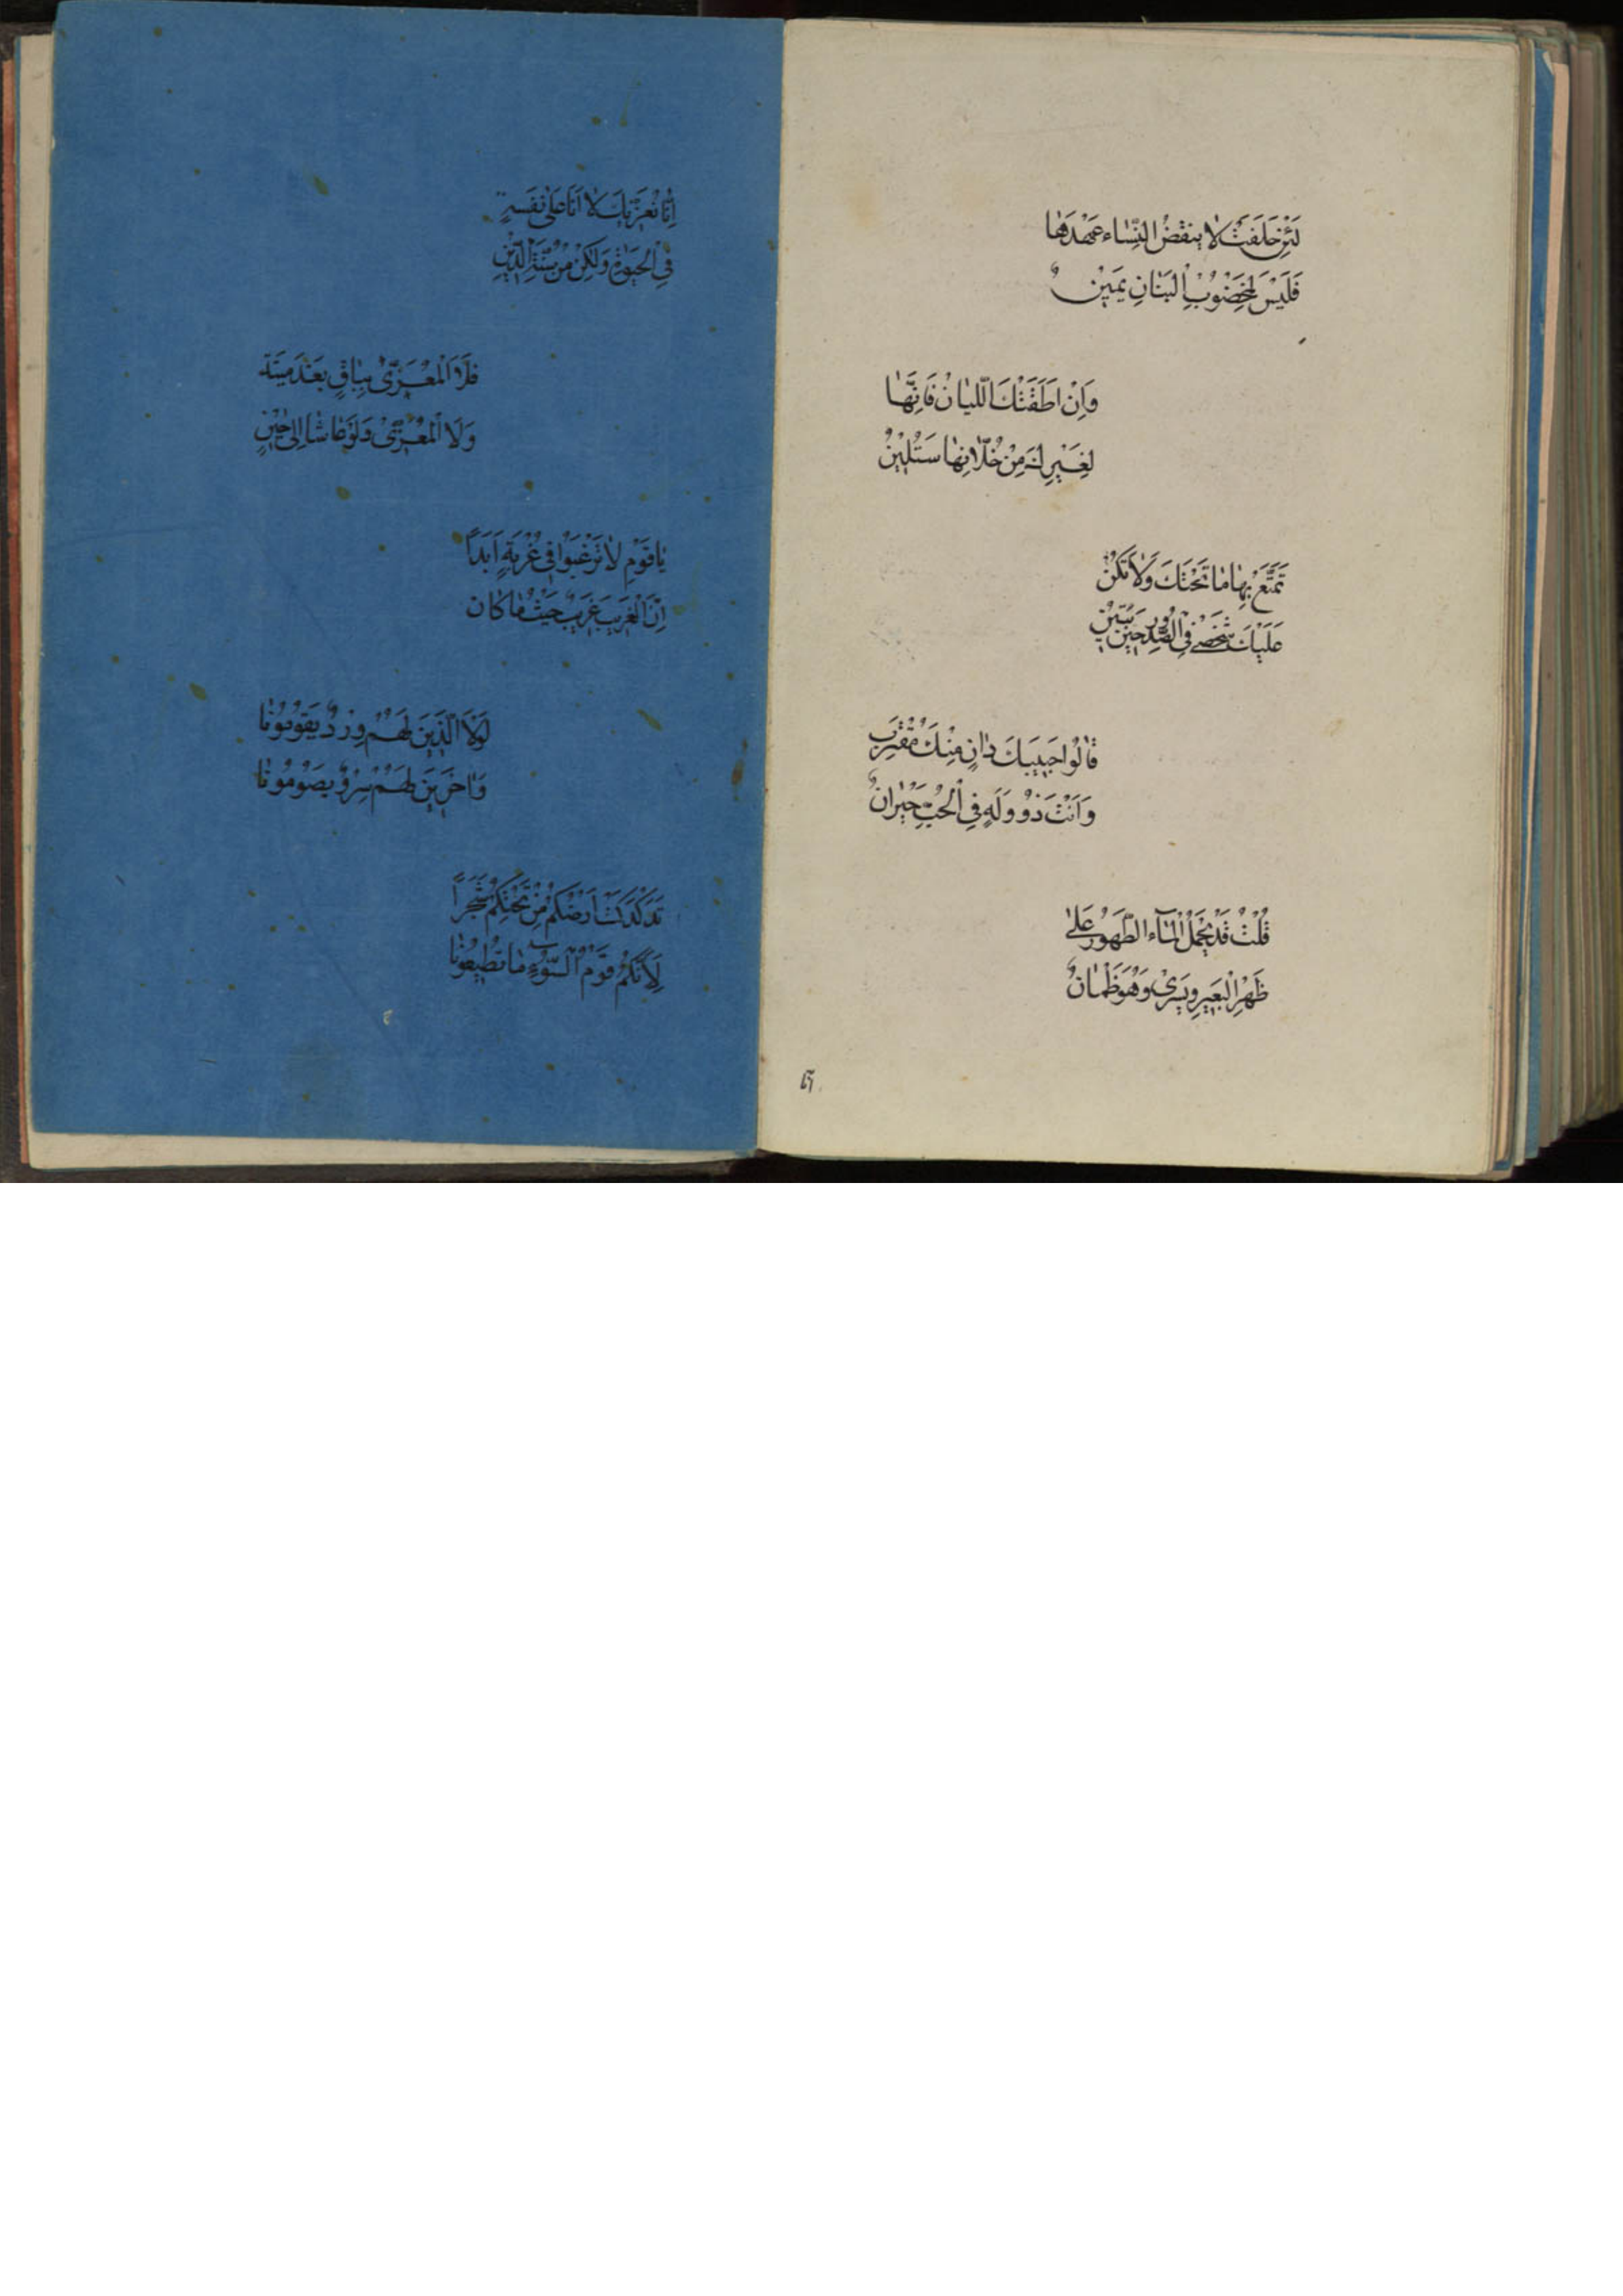 لَئِنْ حَلَفَتْ لَا يَنْقُضُ النِّسَاء عَهْدَهَا
فَلَيْسَ لِمَخْضُوْبِ الْبَنَانِ يَمِيْنٌ
وَاِنْ اَطَفَتْكَ اللَّيَانْ فَاِنَّهَا
لِغَيْرِكَ مِنْ خُلَّانِهَا سَتُلِيْنُ
تَمَتَّعْ بِهَا مَا تَحْتَكَ وَلَا تَكُنْ
عَلَيْكَ شَخْصٌ فِي الصُّدُورِ حِيْنَ تَبِيْنُ
قَالُوا حَبِيبُكَ دَانٍ مِنْكَ مُقْتَرِبٌ
وَاَنْتَ ذُوْ وَلَهٍ فِي الْحُبِّ حَيْرَانٌ
قُلْتُ قَدْ يُحْمَلُ الْمَآءُ الطَّهُوْرُ عَلَى
ظَهْرِ الْبَعِيرِ وَيَسْرِيْ وَهُوَ ظَمْاٰنٌ
۵۹
اِنَّا نُعَزِّيْكَ لَا اَنَّا عَلٰى ثِقَةٍ
فِي الْحَيٰوةِ وَلٰكِنْ مِنْ سُنَّةِ الدِّيْنِ
فَلَا الْمُعَزِّيْ بِبَاقٍ بَعْدَ مَيِّتِهِ
وَلَا الْمُعَزّٰى وَلَوْ عَاشَا اِلٰى حِيْنٍ
يَا قَوْمِ لَا تَرْغَبُوْا فِي غُرْبَةٍ اَبَدًا
اِنَّ الْغَرِيبَ غَرِيبٌ حَيْثُ مَا كَانَ
لَوْلَا الَّذِيْنَ لَهُمْ وِرْدٌ يَقُوْمُوْنَا
وَاٰخَرِيْنَ لَهُمْ سِرْدٌ يَصُوْمُوْنَا
تَدَكْدَكَتْ اَرْضُكُمْ مِنْ تَحْتِكُمْ سَحَرًا
لِاَنَّكُمْ قَوْمُ السُّوْءِ مَا تُطِيْعُوْنَا